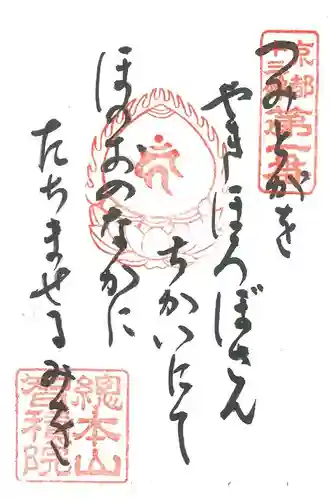 京都
十三佛
第一番
つみとがを
やきほろぼさん
ちかいにて
ほのおのなかに
たちませるみるき
總本山
智積院